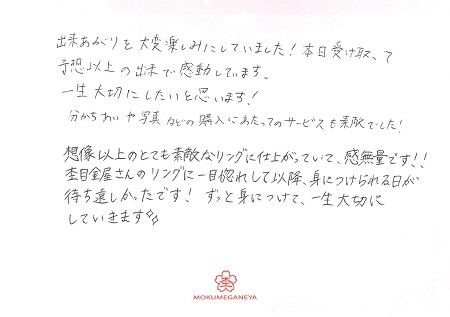 出来あがりを大変楽しみにしていました！本日受け取って
予想以上の出来で感動しています。
一生大切にしたいと思います！
分かちあいや写真などの購入にあたってのサービスも素敵でした！
想像以上のとても素敵なリングに仕上がっていて、感無量です!!
杢目金屋さんのリングに一目惚れして以降、身につけられる日が
待ち遠しかったです！ずっと身につけて、一生大切に
していきます
杢
MOKUMEGANEYA